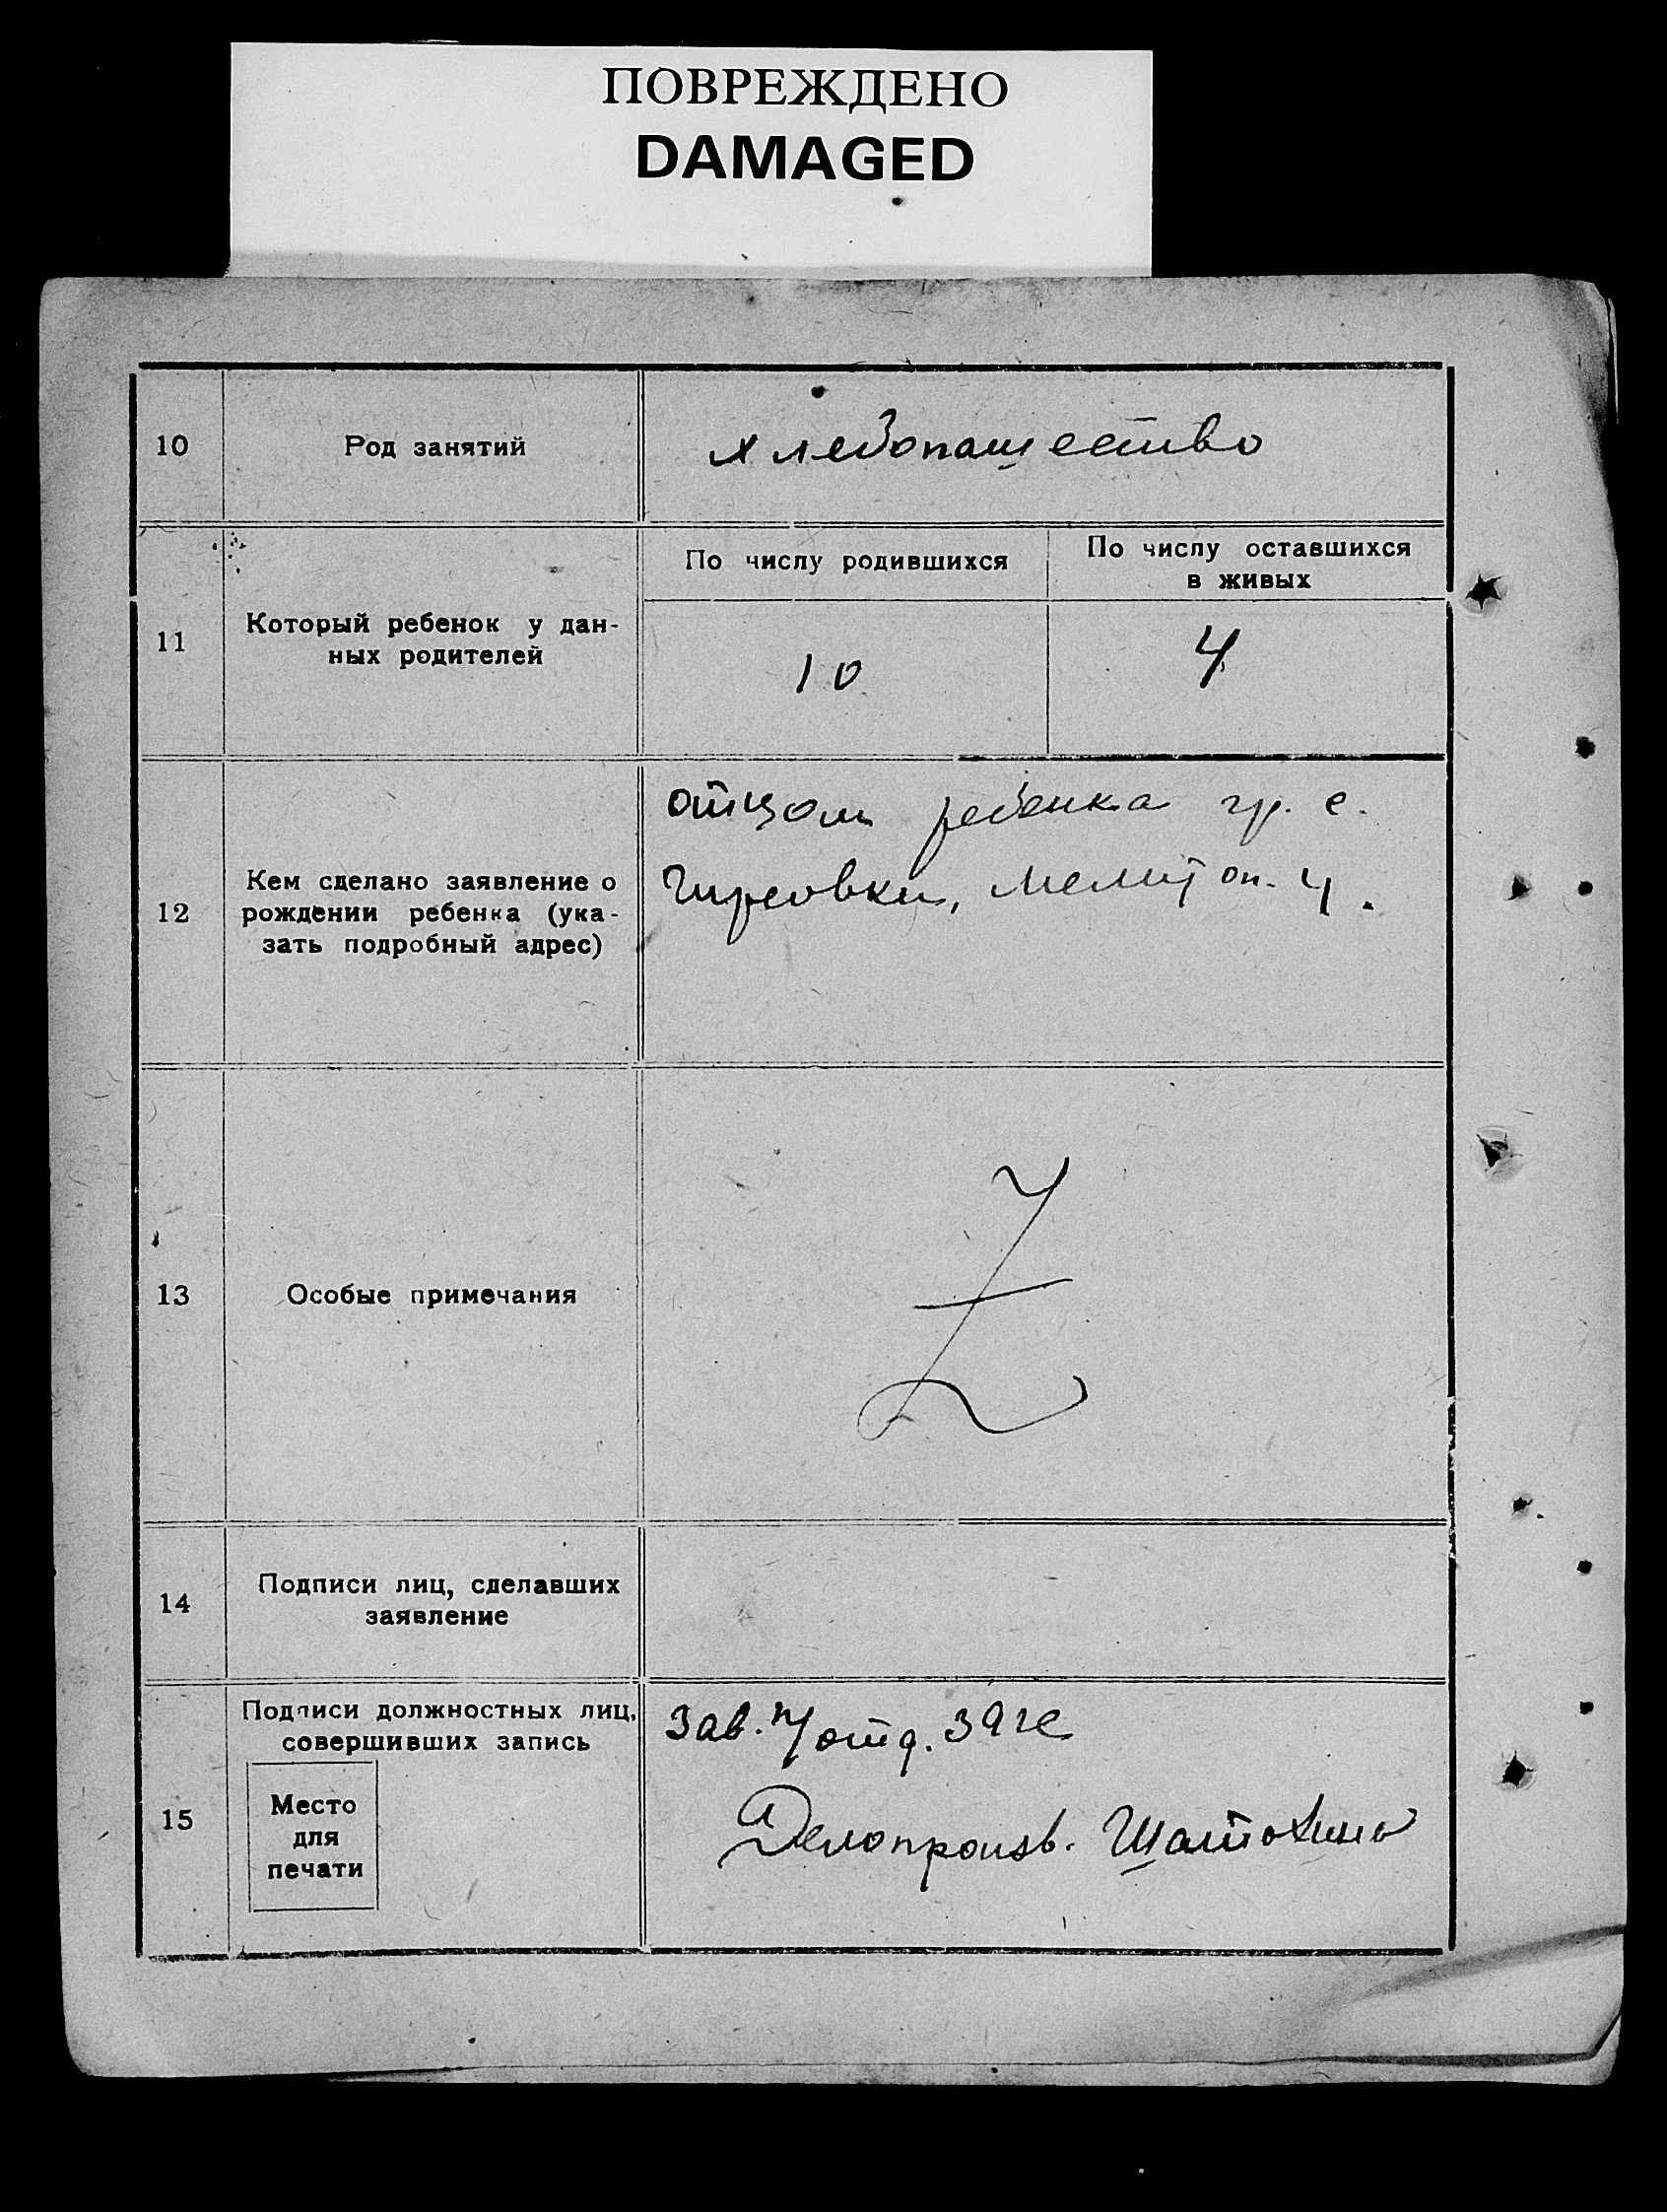 ПОВРЕЖДЕНО
DAMAGED
10
Род занятий
хлебопашество
11
Который ребенок у дан-
ных родителей
По числу родившихся
По числу оставшихся
в живых
10
4
12
Кем сделано заявление о
рождении ребенка (ука-
зать подробный адрес)
отцом ребенка гр. с.
Гирсовки, Мелитоп. у.
13
Особые примечания
14
Подписи лиц, сделавших
заявление
15
Подписи должностных лиц,
совершивших запись
Место
для
печати
Зав. п/отд. загс
Делопроизв.